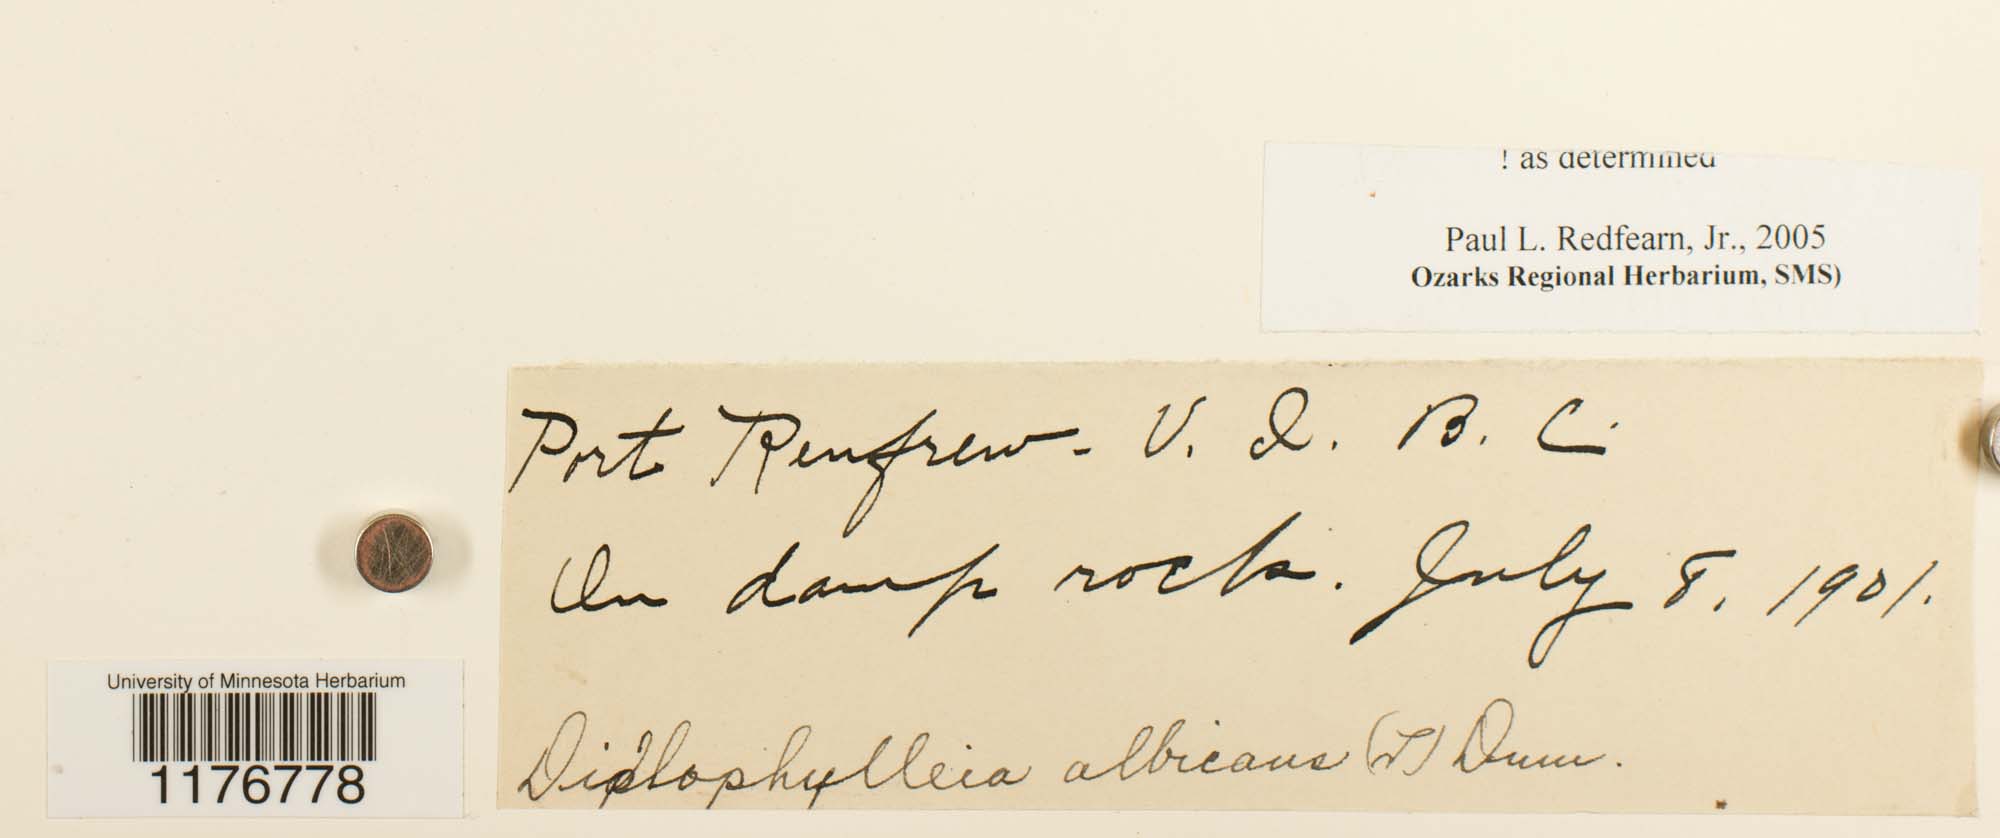 ! as determined
Paul L. Redfearn, Jr., 2005
Ozarks Regional Herbarium, SMS)
Port Renfrew - V. I. B. C.
On damp rock. July 8, 1901.
Diplophylleia albicans (L) Dum.
University of Minnesota Herbarium
1176778